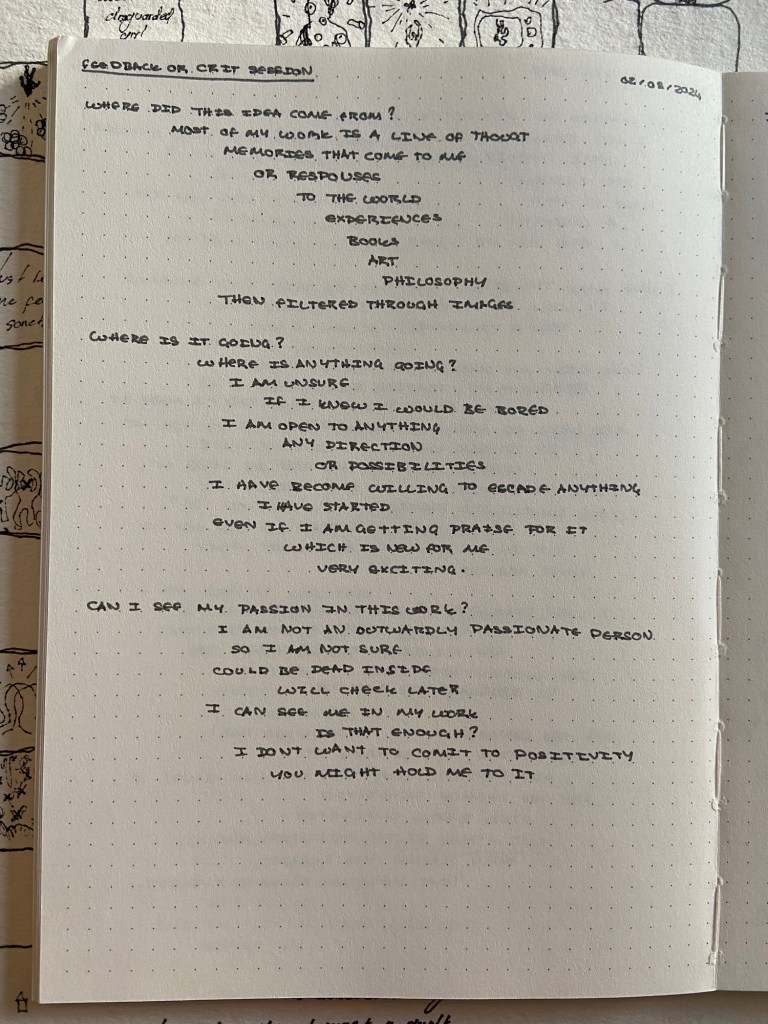 disguarded
FEEDBACK OR CRIT SESSION
02/08/2024
WHERE DID THIS IDEA COME FROM?
MOST OF MY WORK IS A LINE OF THOUGT
MEMORIES THAT COME TO ME
OR RESPOUSES
TO THE WORLD
EXPERIENCES
BOOKS
ART
PHILOSOPHY
THEN FILTERED THROUGH IMAGES
WHERE IS IT GOING?
WHERE IS ANYTHING GOING?
I AM UNSURE
IF I KNEW I WOULD BE BORED
I AM OPEN TO ANYTHING
ANY DIRECTION
OR POSSIBILITIES
I HAVE BECOME WILLING TO ESCADE ANYTHING
I HAVE STARTED
EVEN IF I AM GETTING PRAISE FOR IT
WHICH IS NEW FOR ME
VERY EXCITING.
CAN I SEE MY PASSION IN THIS WORK?
I AM NOT AN OUTWARDLY PASSIONATE PERSON
SO I AM NOT SURE
COULD BE DEAD INSIDE
WILL CHECK LATER
I CAN SEE ME IN MY WORK
IS THAT ENOUGH?
I DONT WANT TO COMIT TO POSITIVITY
YOU MIGHT HOLD ME TO IT